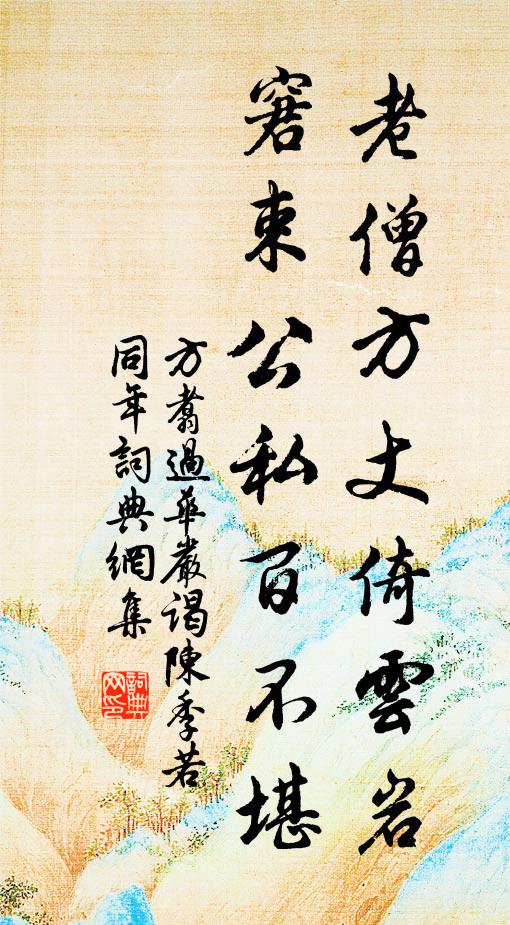 老僧方丈倚雲岩
窘束公私百不堪
方翥過華嚴謁陳季若
同年詞典網集
詞典網印